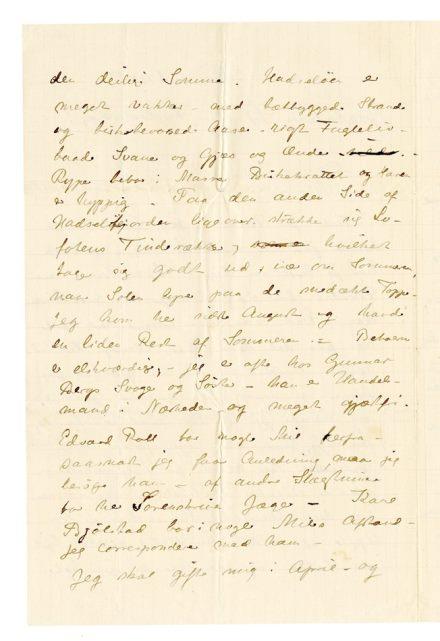 den deilige Sommer. Hadseløen er
meget vakker - med bebyggede Strande
og birkebevoxede Aase - rigt Fugleliv -
baade Svane og Gjæs og Ænder
Rype bebor i Masse Birkekrattet og Hare
er hyppig - Paa den anden Side af
Hadselfjorden ligeover strækker sig Lo-
fotens Tinderække, hvilket
tager sig godt ud, især om Sommeren,
naar Solen lyser paa de snedækte Toppe.
Jeg kom her sidste August og havde
en liden Rest af Sommeren. - Beboerne
er elskværdige, - jeg er ofte hos Gunnar
Bergs Svoger og Søster - han er Handels-
mand i Nærheden og meget gjæstfri.
Edvard bor nogle Mile herfra -
saasnart jeg faar Anledning, maa jeg
besøge ham - af andre
bor her Sorenskriver - Thore
bor i nogle Miles Afstand -
jeg corresponderer med ham -
Jeg skal gifte mig i April - og